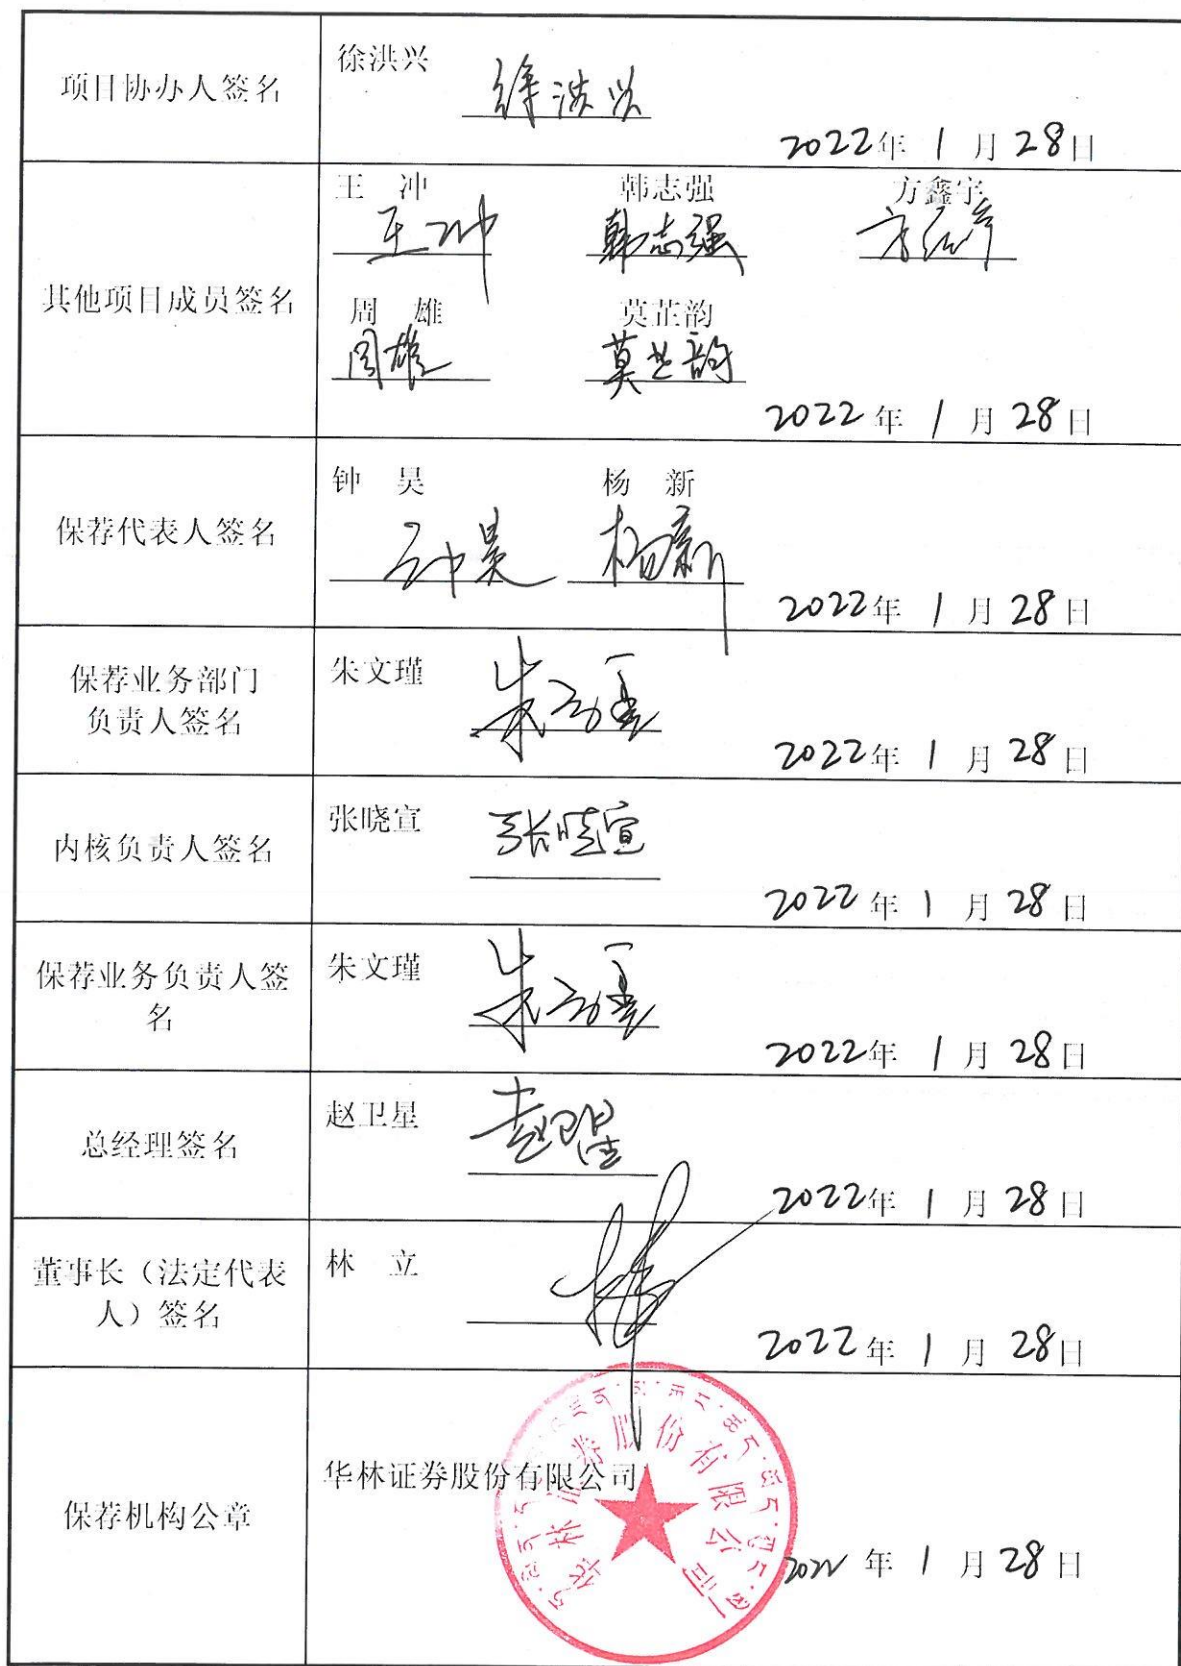 项目协办人签名
徐洪兴
徐洪兴
2022年 1 月 28日
其他项目成员签名
王 冲 韩志强 方鑫宇
王冲 韩志强 方鑫宇
周 雄 莫芷韵
周雄 莫芷韵
2022 年 1 月 28日
保荐代表人签名
钟 昊 杨 新
钟昊 杨新
2022年 1 月 28日
保荐业务部门
负责人签名
朱文瑾
朱文瑾
2022年 1 月 28日
内核负责人签名
张晓宣
张晓宣
2022 年 1 月 28日
保荐业务负责人签
名
朱文瑾
朱文瑾
2022年 1 月 28日
总经理签名
赵卫星
赵卫星
2022年 1 月 28日
董事长（法定代表
人）签名
林 立
2022 年 1 月 28日
保荐机构公章
华林证券股份有限公司
华林证券股份有限公司
2022 年 1 月 28日